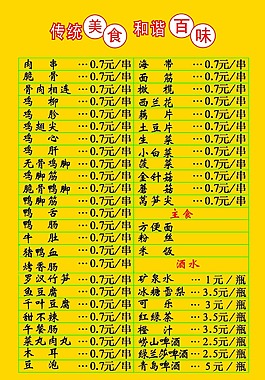 传统美食 和谐百味
肉串 …0.7元/串
脆骨 …0.7元/串
骨肉相连 …0.7元/串
鸡柳 …0.7元/串
鸡胗 …0.7元/串
鸡翅尖 …0.7元/串
鸡心 …0.7元/串
鸡肝 …0.7元/串
无骨鸡脚 …0.7元/串
鸡脚筋 …0.7元/串
脆骨鸭脚 …0.7元/串
鸭脚筋 …0.7元/串
鸭舌 …0.7元/串
鸭肠 …0.7元/串
牛肚 …0.7元/串
猪鸭血 …0.7元/串
烤香肠 …0.7元/串
罗汉竹笋 …0.7元/串
鱼豆腐 …0.7元/串
千叶豆腐 …0.7元/串
甜不辣 …0.7元/串
午餐肠 …0.7元/串
菜丸肉丸 …0.7元/串
木耳 …0.7元/串
豆泡 …0.7元/串
海带 …0.7元/串
面筋 …0.7元/串
橄榄 …0.7元/串
西兰花 …0.7元/串
藕片 …0.7元/串
土豆片 …0.7元/串
生菜 …0.7元/串
小白菜 …0.7元/串
菠菜 …0.7元/串
金针菇 …0.7元/串
蘑菇 …0.7元/串
莴笋尖 …0.7元/串
主食
方便面
粉丝
米饭
酒水
矿泉水 …1元/瓶
冰糖雪梨 …3.5元/瓶
可乐 …3元/瓶
红绿茶 …3.5元/瓶
橙汁 …3.5元/瓶
崂山啤酒 …2.5元/瓶
绿兰莎啤酒 …2.5元/瓶
青岛啤酒 …5元/瓶